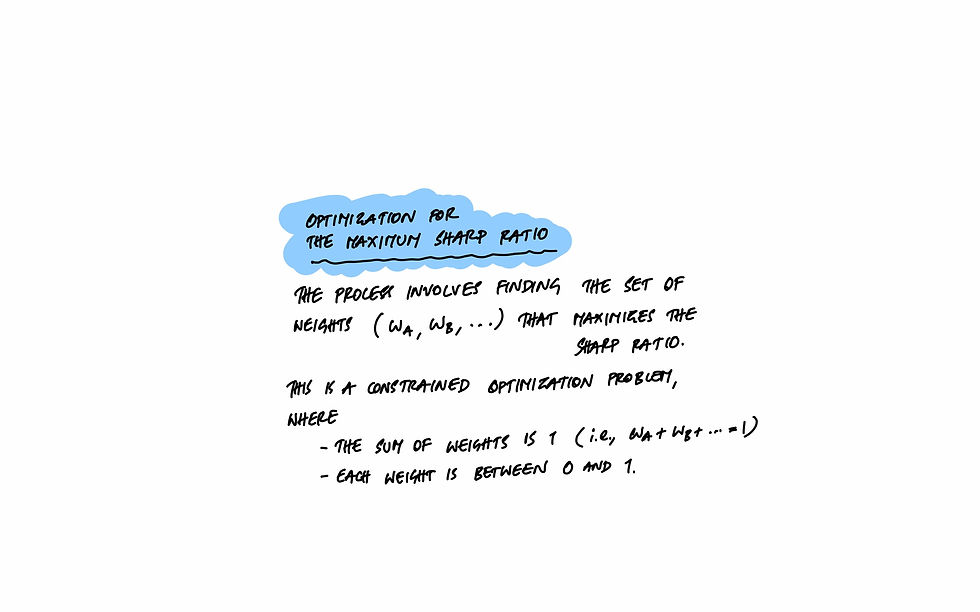 OPTIMIZATION FOR
THE MAXIMUM SHARP RATIO
THE PROCESS INVOLVES FINDING THE SET OF
WEIGHTS (WA, WB, ...) THAT MAXIMIZES THE
SHARP RATIO.
THIS IS A CONSTRAINED OPTIMIZATION PROBLEM,
WHERE
- THE SUM OF WEIGHTS IS 1 (i.e., WA + WB + ... = 1)
- EACH WEIGHT IS BETWEEN 0 AND 1.